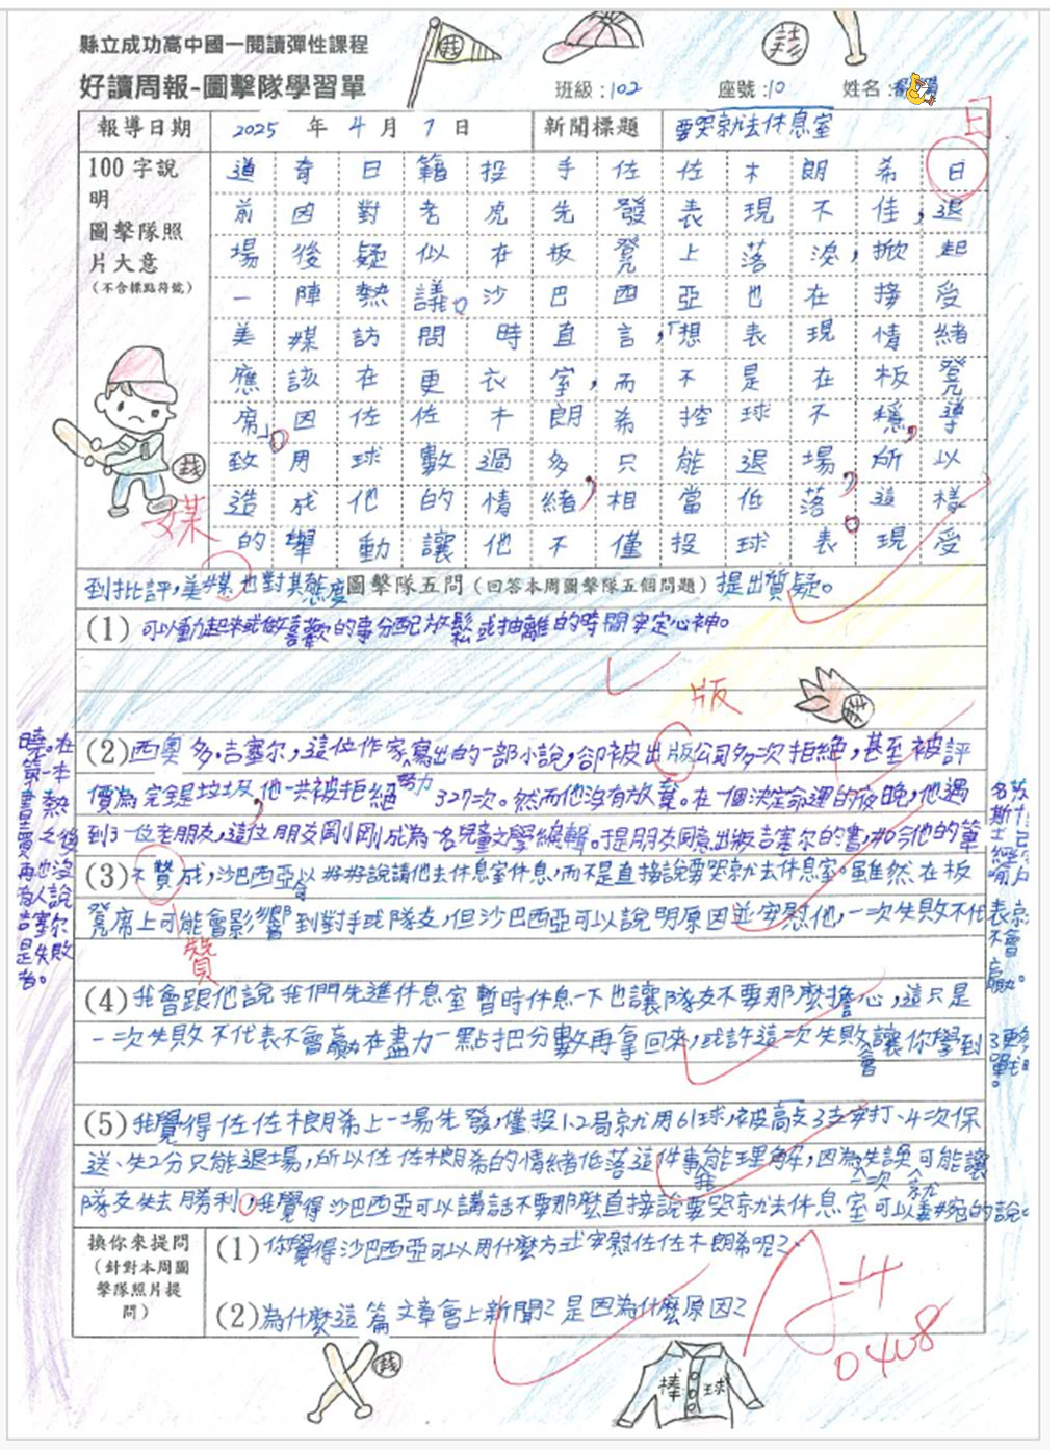 縣立成功高中國一閱讀彈性課程
好讀周報-圖擊隊學習單
班級:102 座號:10 姓名:
報導日期 2025 年 4 月 7 日 新聞標題 要哭就去休息室
100 字說明
圖擊隊照片大意
(不含標點符號)
道奇日籍投手佐佐木朗希日
前因對老虎先發表現不佳,退
場後疑似在板凳上落淚,掀起
一陣熱議。沙巴西亞也在接受
美媒訪問時直言,「想表現情緒
應該在更衣室,而不是在板凳
席」。因佐佐木朗希控球不穩,導
致用球數過多,只能退場,所以
造成他的情緒,相當低落。這樣
的舉動讓他不僅投球表現受
到批評,美媒也對其態度提出質疑。
媒
日
圖擊隊五問(回答本周圖擊隊五個問題)
(1) 可以動起來或做喜歡的事分配放鬆或抽離的時間安定心神。
版
(2)西奧多.吉塞尔,這位作家寫出的一部小說,卻被出版公司多次拒絕,甚至被評
價為完全是垃圾,他一共被拒絕努力327次。然而他沒有放棄。在一個決定命運的夜晚,他遇
到了一位老朋友,這位朋友剛剛成為一名兒童文學編輯。于是朋友同意出版吉塞尔的書,如今他的第
(3)不贊成,沙巴西亞可以好好說請他去休息室休息,而不是直接說要哭就去休息室。雖然在板
凳席上可能會影響到對手或隊友,但沙巴西亞可以說明原因並安慰他,一次失敗不代表
不會贏。
贊
(4)我會跟他說我們先進休息室暫時休息一下也讓隊友不要那麼擔心,這只是
一次失敗不代表不會贏在盡力一點把分數再拿回來,或許這一次失敗會讓你學到了更多
(5)我覺得佐佐木朗希上一場先發,僅投1.2局就用61球,被高敲3支安打、4次保
送、失2分只能退場,所以佐佐木朗希的情緒低落這件事我能理解,因為一次失誤可能就讓
隊友失去勝利,我覺得沙巴西亞可以講話不要那麼直接說要哭就去休息室可以委婉的說。
換你來提問
(針對本周圖擊隊照片提問)
(1)你覺得沙巴西亞可以用什麼方式安慰佐佐木朗希呢?
(2)為什麼這篇文章會上新聞?是因為什麼原因?
A++
0408
棒球